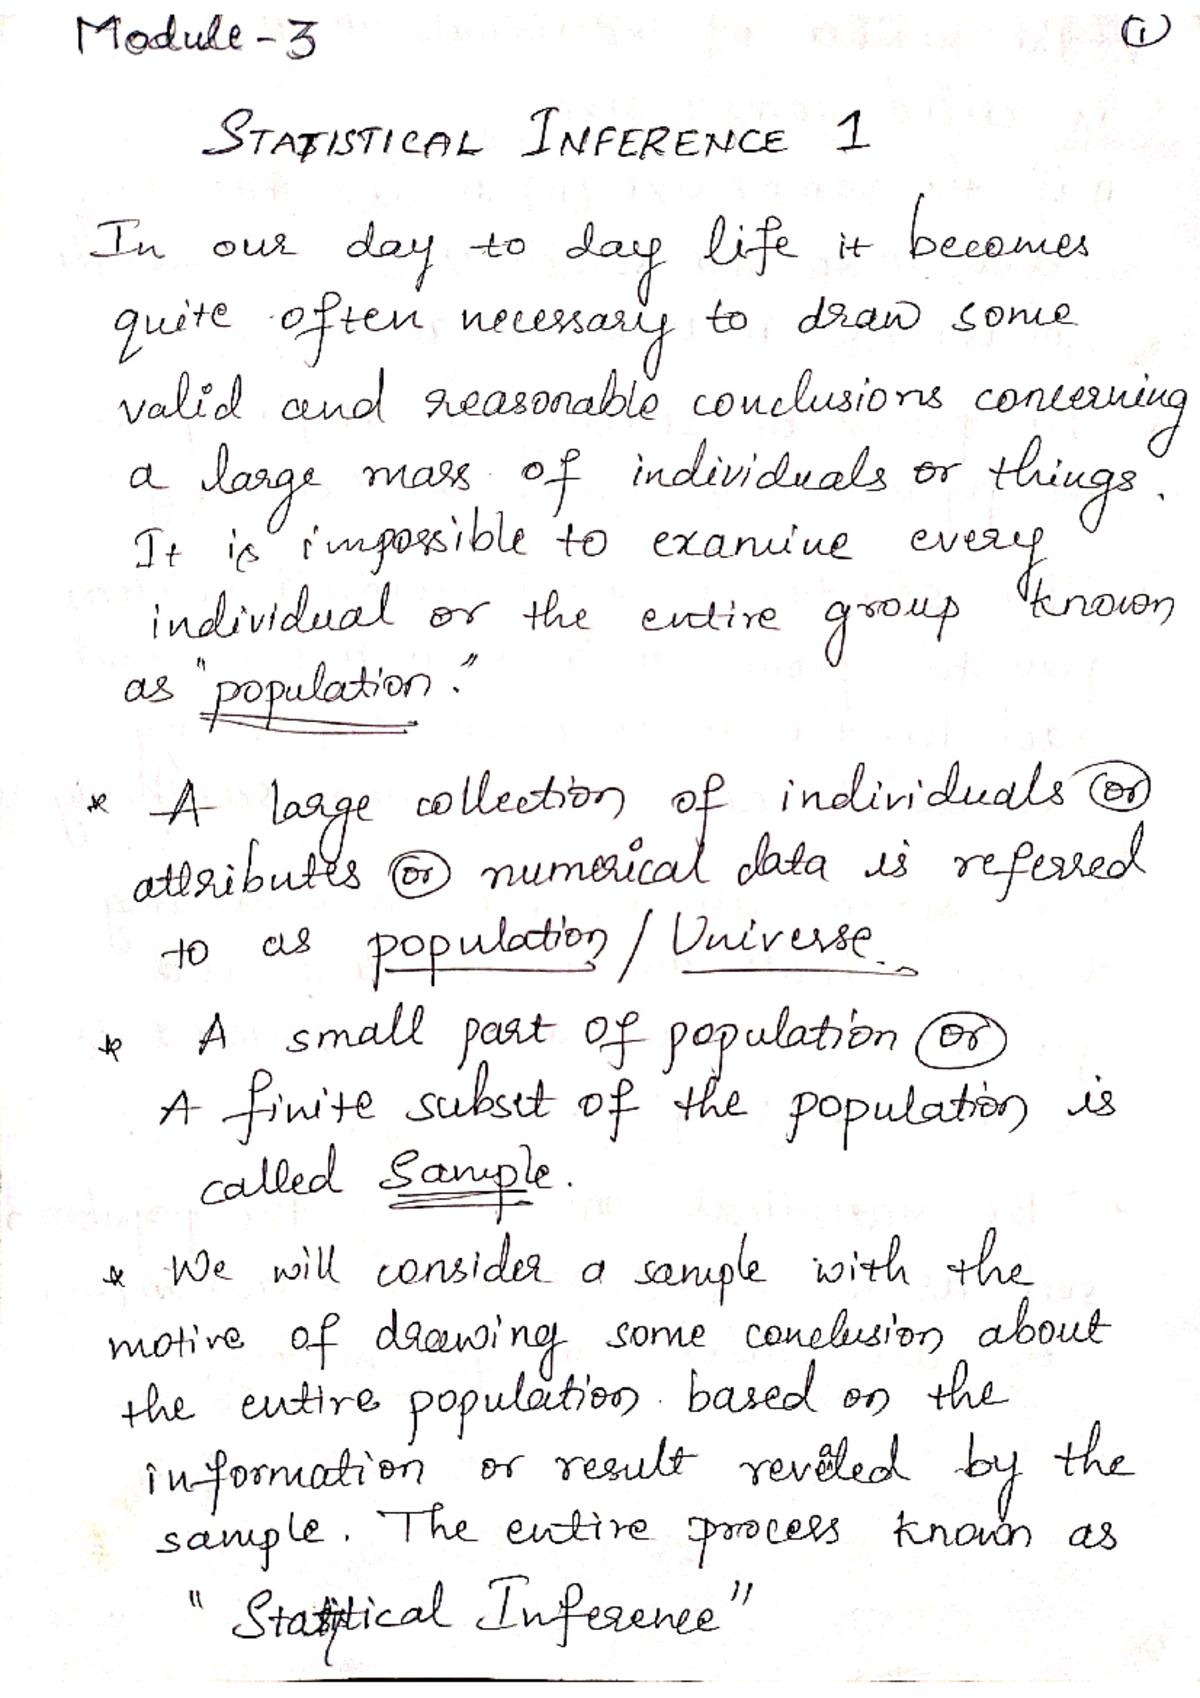 Module - 3
1
STATISTICAL INFERENCE 1
In our day to day life it becomes
quite often necessary to draw some
valid and reasonable conclusions concerning
a large mass of individuals or things.
It is impossible to examine every
individual or the entire group known
as "population."
* A large collection of individuals or
attributes or numerical data is referred
to as population / Universe.
* A small part of population or
A finite subset of the population is
called Sample.
* We will consider a sample with the
motive of drawing some conclusion about
the entire population based on the
information or result revealed by the
sample. The entire process known as
" Statistical Inference"